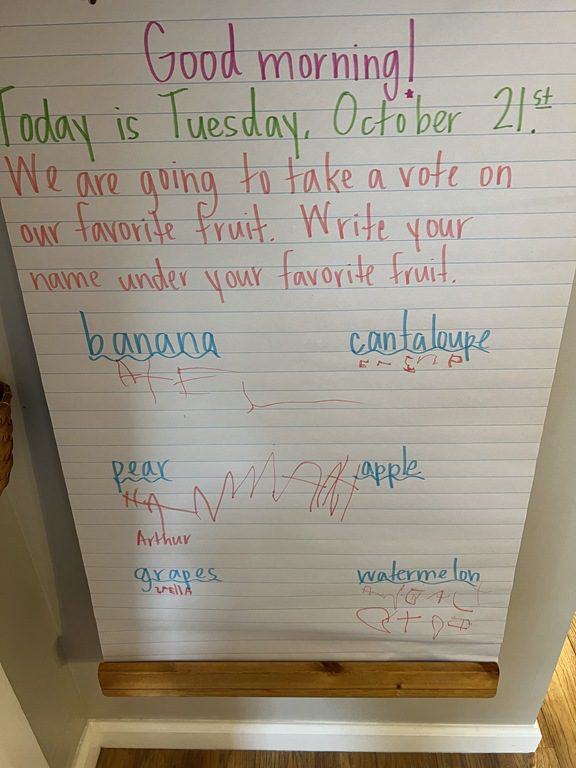 Good morning!
Today is Tuesday, October 21st.
We are going to take a vote on
our favorite fruit. Write your
name under your favorite fruit.
banana cantaloupe
pear apple
Arthur
grapes watermelon